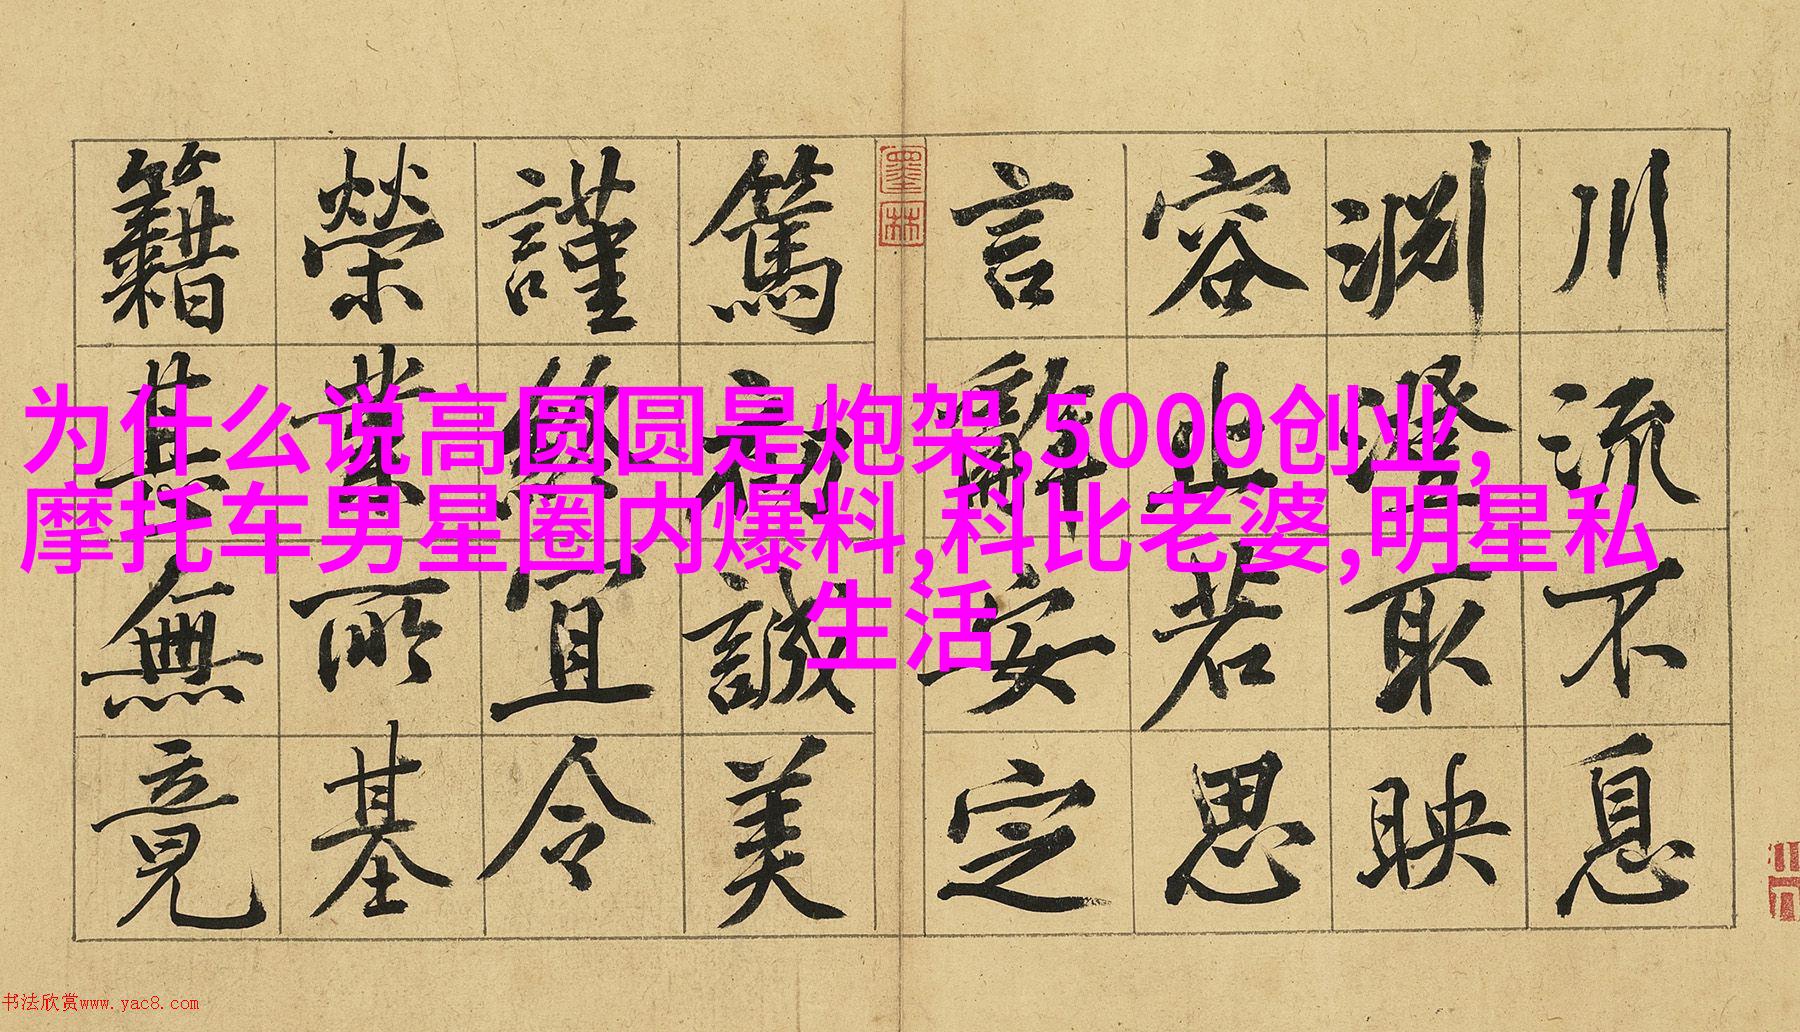 川流不息
淵澄取映
容止若思
言辭安定
墨林
篤初誠美
謹終宜令
榮業所基
籍甚無竟
为什么说高圆圆是炮架,5000创业,
摩托车男星圈内爆料,科比老婆,明星私
生活
书法欣赏www.yac8.com